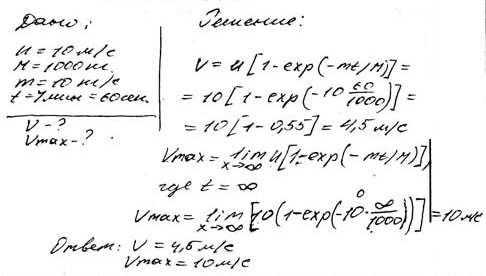 Дано:
u = 10 м/с
M = 1000 кг.
m = 10 кг/с
t = 1 мин = 60 сек.
V - ?
Vmax - ?
Решение:
V = u [1 - exp(-mt/M)] =
= 10 [1 - exp(-10 60/1000)] =
= 10 [1 - 0,55] = 4,5 м/с
Vmax = lim x→∞ u[1 - exp(-mt/M)],
где t = ∞
Vmax = lim x→∞ [10(1 - exp(-10 · ∞/1000))] = 10 м/с
0
Ответ: V = 4,5 м/с
Vmax = 10 м/с